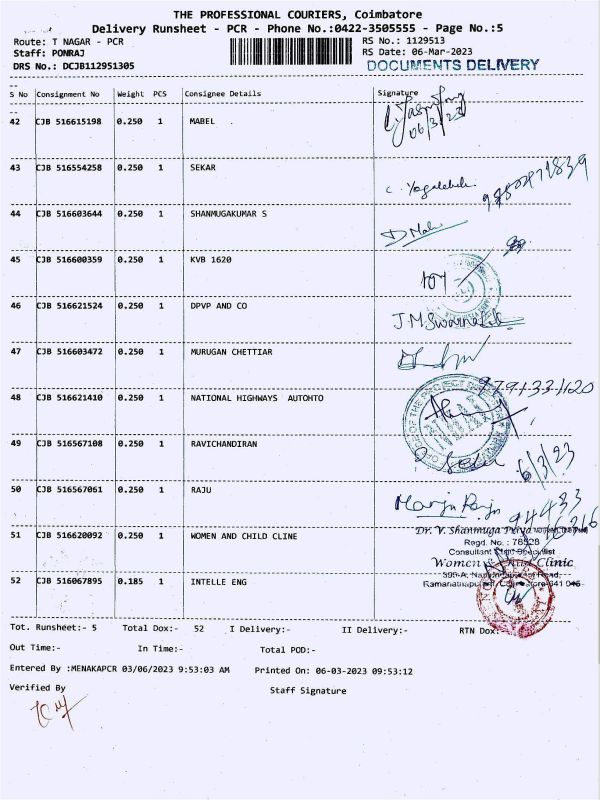 THE PROFESSIONAL COURIERS, Coimbatore
Delivery Runsheet - PCR - Phone No.:0422-3505555 - Page No.:5
Route: T NAGAR - PCR
RS No.: 1129513
Staff: PONRAJ
RS Date: 06-Mar-2023
DRS No.: DCJB112951305
DOCUMENTS DELIVERY
S No Consignment No Weight PCS Consignee Details Signature
42 CJB 516615198 0.250 1 MABEL .
06/3/23
43 CJB 516554258 0.250 1 SEKAR
44 CJB 516603644 0.250 1 SHANMUGAKUMAR S
45 CJB 516600359 0.250 1 KVB 1620
46 CJB 516621524 0.250 1 DPVP AND CO
47 CJB 516603472 0.250 1 MURUGAN CHETTIAR
48 CJB 516621410 0.250 1 NATIONAL HIGHWAYS AUTOHTO
9791331120
49 CJB 516567108 0.250 1 RAVICHANDIRAN
6/3/23
50 CJB 516567061 0.250 1 RAJU
51 CJB 516620092 0.250 1 WOMEN AND CHILD CLINE
Dr. V. Shanmuga Priya
Regd. No. : 78528
Consultant
Women & Clinic
52 CJB 516067895 0.185 1 INTELLE ENG
Tot. Runsheet:- 5 Total Dox:- 52 I Delivery:- II Delivery:- RTN Dox:-
Out Time:- In Time:- Total POD:-
Entered By :MENAKAPCR 03/06/2023 9:53:03 AM Printed On: 06-03-2023 09:53:12
Verified By Staff Signature